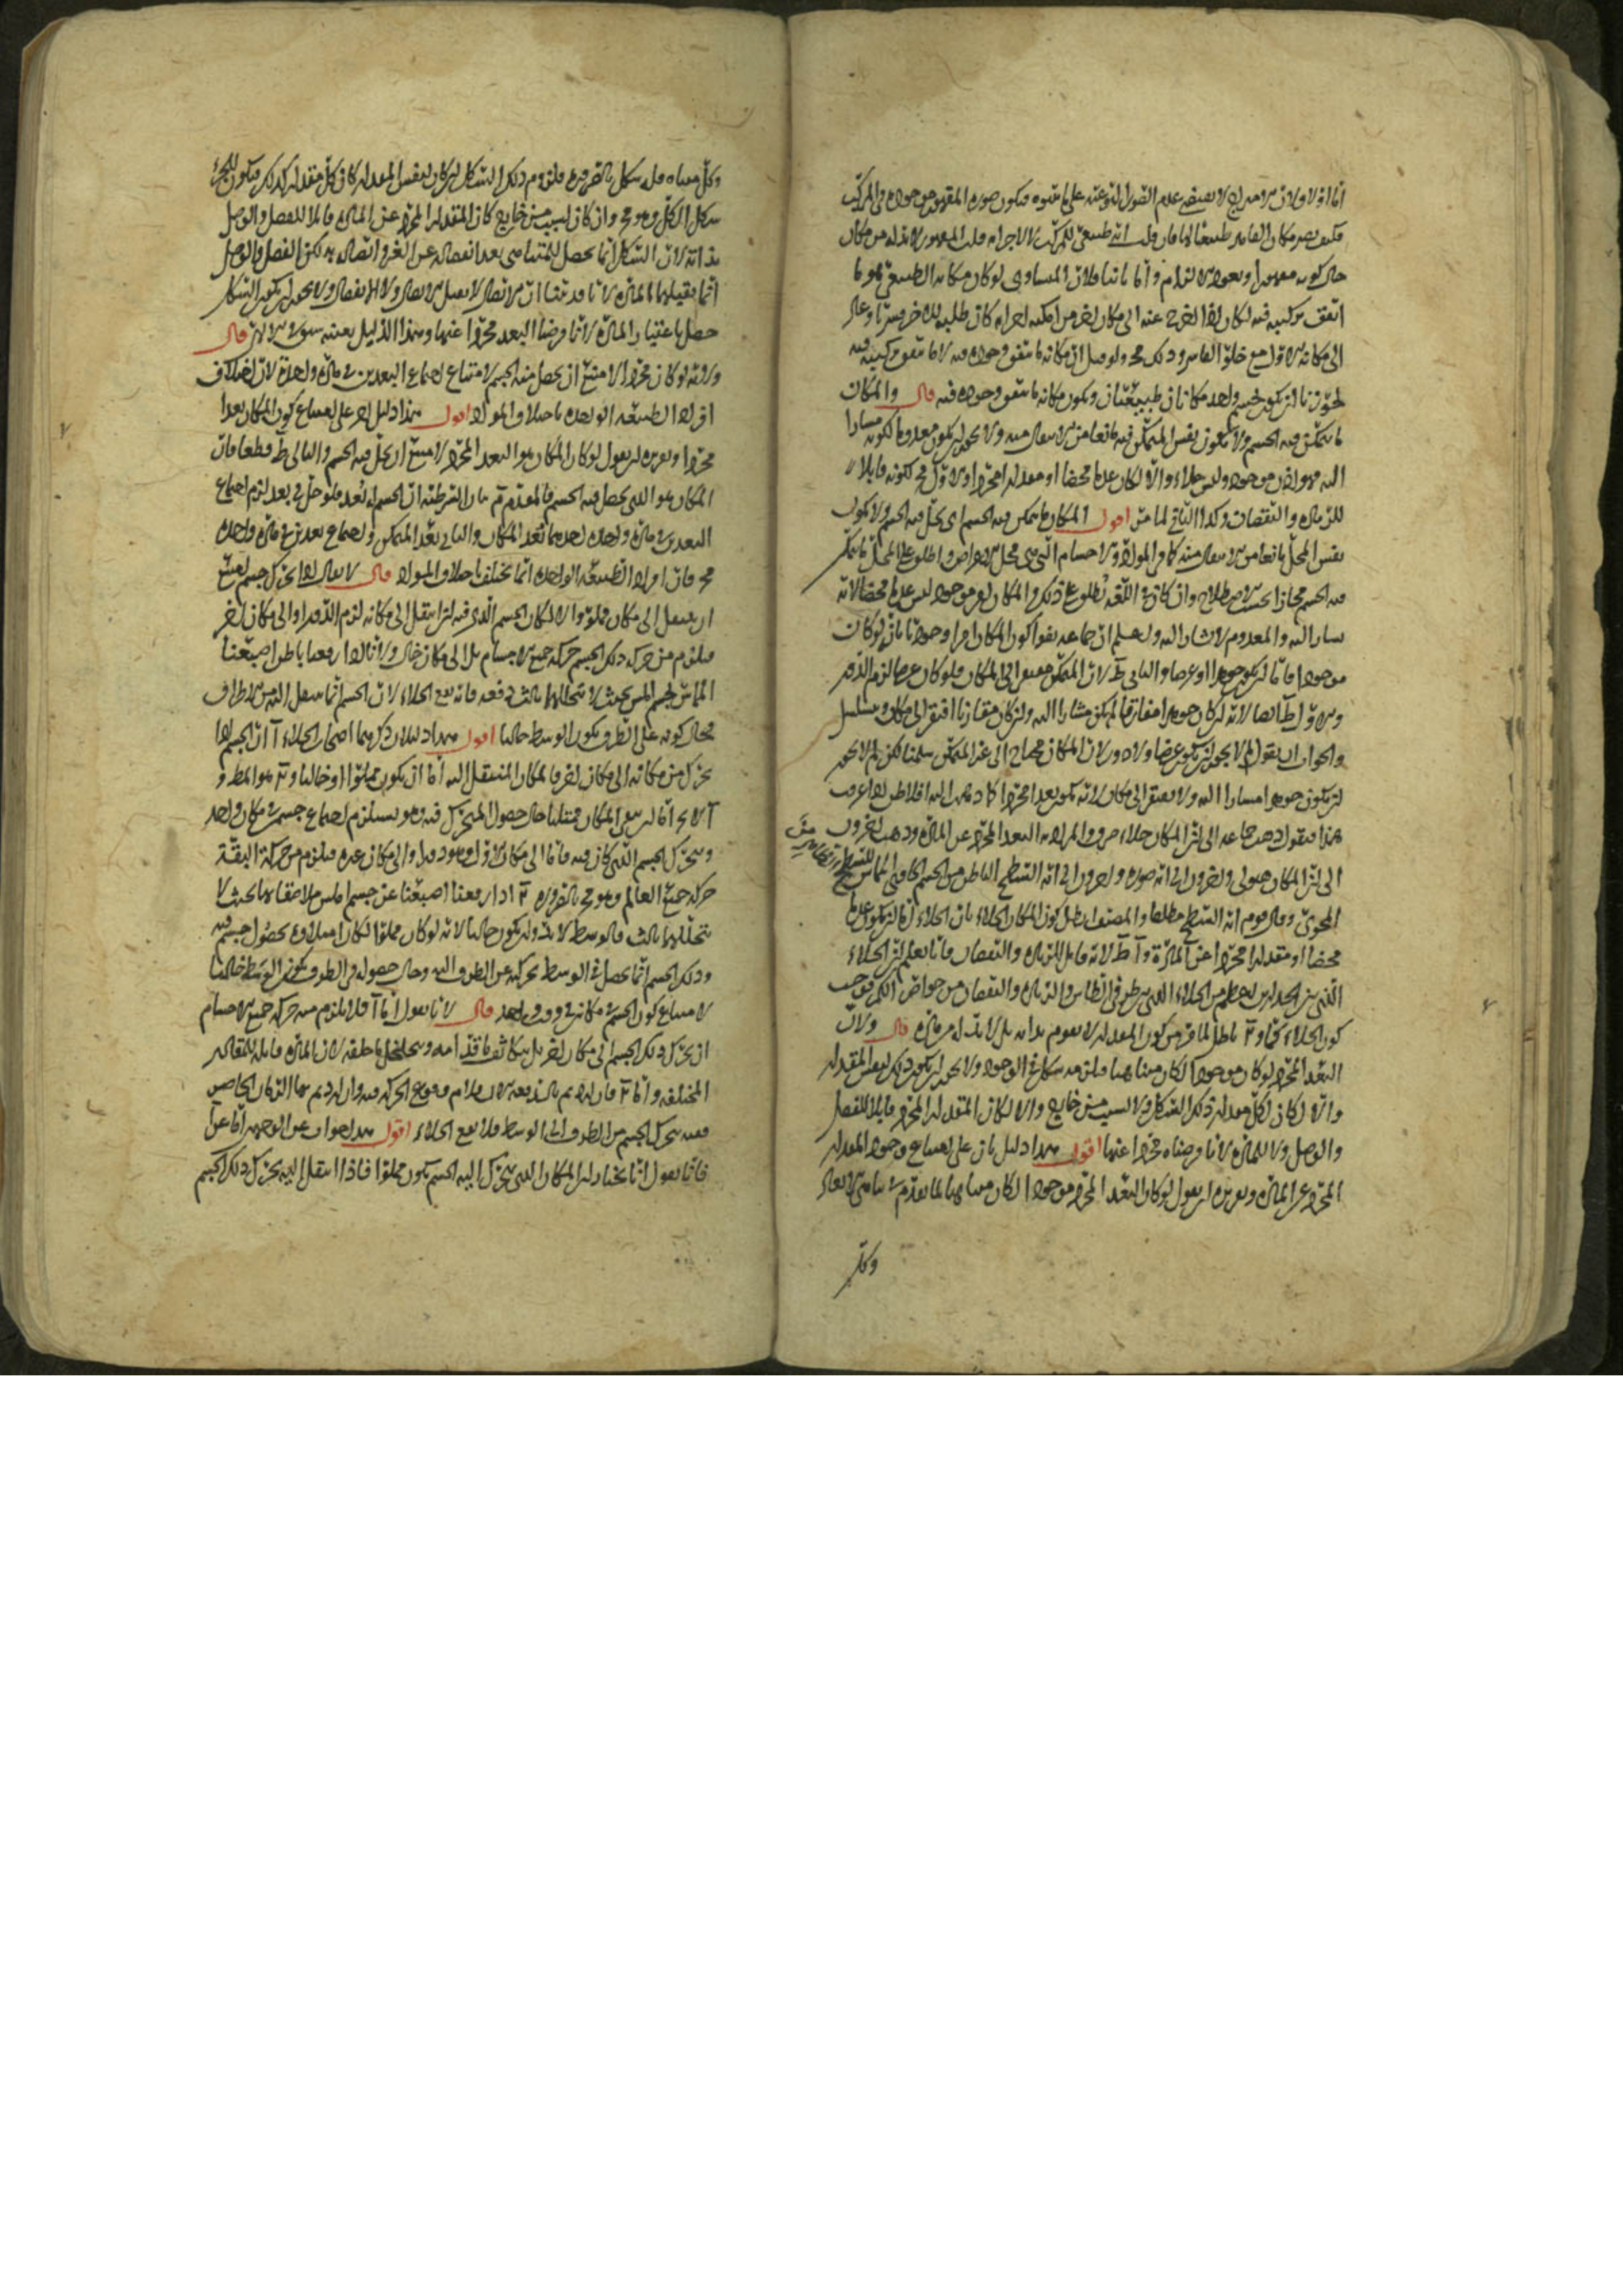 اما اولا فلان
حال كونه
اتفق تركيبه فيه لكان اذا اخرج عنه الى مكان اخر من امكنة اجزائه كان طلبه
الى مكانه الاول مع خلو القاسر وذلك مح ولو قيل ان مكانه ما يتفق وجوده فيه لا ما يتفق تركيبه فيه
لجوزنا ان يكون لجسم واحد مكانان طبيعيان ويكون مكانه ما يتفق وجوده فيه قال والمكان
ما يتمكن فيه الجسم ولا يكون نفس المتمكن فيه مانعا من الانتقال منه ولا يجوز ان يكون معدوما لكونه مشارا
اليه فهو اذن موجود وليس خلاء والا لكان عدما محضا او مقدارا مجردا والاول مح لكونه قابلا
للزيادة والنقصان وكذا الثاني لما مر اقول المكان ما يتمكن فيه الجسم اى يحل فيه الجسم ولا يكون
نفس المحل مانعا من الانتقال منه كما فى المواد والاجسام التى هى محل الاعراض واطلق على المحل ما يتمكن
فيه الجسم مجازا بحسب الاصطلاح وان كان فى اللغة يطلق على ذلك والمكان امر موجود ليس عدما محضا لانه
يشار اليه والمعدوم لا يشار اليه وليعلم ان جماعة نفوا كون المكان امرا وجوديا بانه لو كان
موجودا فاما ان يكون جوهرا او عرضا والتالى ط لان المتمكن مفتقر الى المكان فلو كان عرضا لزم الدور
والاول ط ايضا لانه ان كان جوهرا مفارقا لم يكن مشارا اليه وان كان مقارنا افتقر الى مكان وتسلسل
والجواب ان نقول لم لا يجوز ان يكون عرضا ولا دور لان المكان محتاج الى غير المتمكن سلمنا لكن لم لا يجوز
ان يكون جوهرا مشارا اليه ولا يفتقر الى مكان لانه يكون بعدا مجردا كما ذهب اليه افلاطن اذا عرفت
هذا فنقول ذهب جماعة الى ان المكان خلاء صرف والمراد به البعد المجرد عن المادة وذهب اخرون
الى ان المكان هيولى واخرون الى انه صورة واخرون الى انه السطح الباطن من الجسم الحاوى المماس للسطح الظاهر من
المحوى وقال قوم انه السطح مطلقا والمصنف ابطل كون المكان الخلاء بان الخلاء اما ان يكون عدما
محضا او مقدارا مجردا عن المادة و آ ط لانه قابل للزيادة والنقصان فانا نعلم ان الخلاء
الذى بين الجدارين اعظم من الخلاء الذى بين طرفى الطاس والزيادة والنقصان من خواص الكم فوجب
كون الخلاء كما و ب باطل لما مر من كون المقدار لا يقوم بذاته بل لا بد له من مادة قال ولان
البعد المجرد لو كان موجودا لكان متناهيا فيلزمه شكل فى الوجود ولا يجوز ان يكون ذلك لنفس المقدار
والا لكان لكل مقدار ذلك الشكل ولا لسبب من خارج والا لكان المقدار المجرد قابلا للفصل
والوصل ولا للمادة لانا فرضناه مجردا عنها اقول هذا دليل ثان على امتناع وجود المقدار
المجرد عن المادة وتقريره ان نقول لو كان البعد المجرد موجودا لكان متناهيا لما تقدم من تناهى الابعاد
وكل
وكل متناه فله شكل بالضرورة فلزوم ذلك الشكل ان كان لنفس المقدار كان كل مقدار كذلك فيكون للجزء
شكل الكل وهو مح وان كان لسبب من خارج كان المقدار المجرد عن المادة قابلا للفصل والوصل
بذاته لان الشكل انما يحصل للمتناهى بعد انفصاله عن الغير او اتصاله به لكن الفصل والوصل
انما يقبلهما المادة لانا قد بينا ان الاتصال لا يقبل الاتصال ولا الانفصال ولا يجوز ان يكون الشكل
حصل باعتبار المادة لانا فرضنا البعد مجردا عنها وهذا الدليل بعينه قال
ولانه لو كان مجردا لامتنع ان يحصل فيه الجسم لامتناع اجتماع البعدين فى مادة واحدة لان اختلاف
افراد الطبيعة الواحدة باختلاف المواد اقول هذا دليل اخر على امتناع كون المكان بعدا
مجردا وتقريره ان نقول لو كان المكان هو البعد المجرد لامتنع ان يحل فيه الجسم والتالى ط قطعا فان
المكان هو الذى يحصل فيه الجسم فالمقدم مثله بيان الشرطية ان الجسم له بعد فلو حل فى بعد لزم اجتماع
البعدين فى مادة واحدة احدهما بعد المكان والثانى بعد المتمكن واجتماع بعدين فى مادة واحدة
مح فان افراد الطبيعة الواحدة انما تختلف باختلاف المواد قال لا يقال اذا تحرك جسم امتنع
ان ينتقل الى مكان مملو والا لكان الجسم الذى فيه ان انتقل الى مكانه لزم الدور او الى مكان اخر
فيلزم من حركة ذلك الجسم حركة جميع الاجسام بل الى مكان خال ولانا اذا رفعنا باطن اصبعنا
المماس لجسم املس بحيث لا يتخللهما ثالث دفعة فانه يقع الخلاء لان الجسم انما ينتقل اليه من الاطراف
فحال كونه على الطرف يكون الوسط خاليا اقول هذا دليلان ذكرهما اصحاب الخلاء آ ان الجسم اذا
تحرك من مكانه الى مكان اخر فالمكان المنتقل اليه اما ان يكون مملوا او خاليا و ب هو المط و
آ لا يخ اما ان يبقى المكان ممتلئا حال حصول المتحرك فيه وهو يستلزم اجتماع جسمين فى مكان واحد
او يتحرك الجسم الذى كان فيه فاما الى مكان الاول وهو دور او الى مكان غيره فيلزم من حركة البقة
حركة جميع العالم وهو مح بالضرورة ب اذا رفعنا اصبعنا عن جسم املس ملاصقا لها بحيث لا
يتخللهما ثالث فالوسط لا بد وان يكون خاليا لانه لو كان مملوا لكان امتلاؤه بحصول جسم فيه
وذلك الجسم انما يحصل فى الوسط بحركته عن الطرف اليه وحال حصوله فى الطرف يكون الوسط خاليا
لامتناع كون الجسم فى مكانين فى وقت واحد قال لانا نقول اما آ فلا يلزم منه حركة جميع الاجسام
ان تحرك ذلك الجسم الى مكان اخر بل يتكاثف ما قدامه ويتخلخل ما خلفه لان المادة قابلة للمقادير
المختلفة واما ب فان
ففيه يتحرك الجسم من الطرف الى الوسط فلا يقع الخلاء اقول هذا جواب عن الوجهين اما عن آ
فانا نقول انا نختار ان المكان الذى يتحرك اليه الجسم يكون مملوا فاذا انتقل اليه تحرك ذلك الجسم